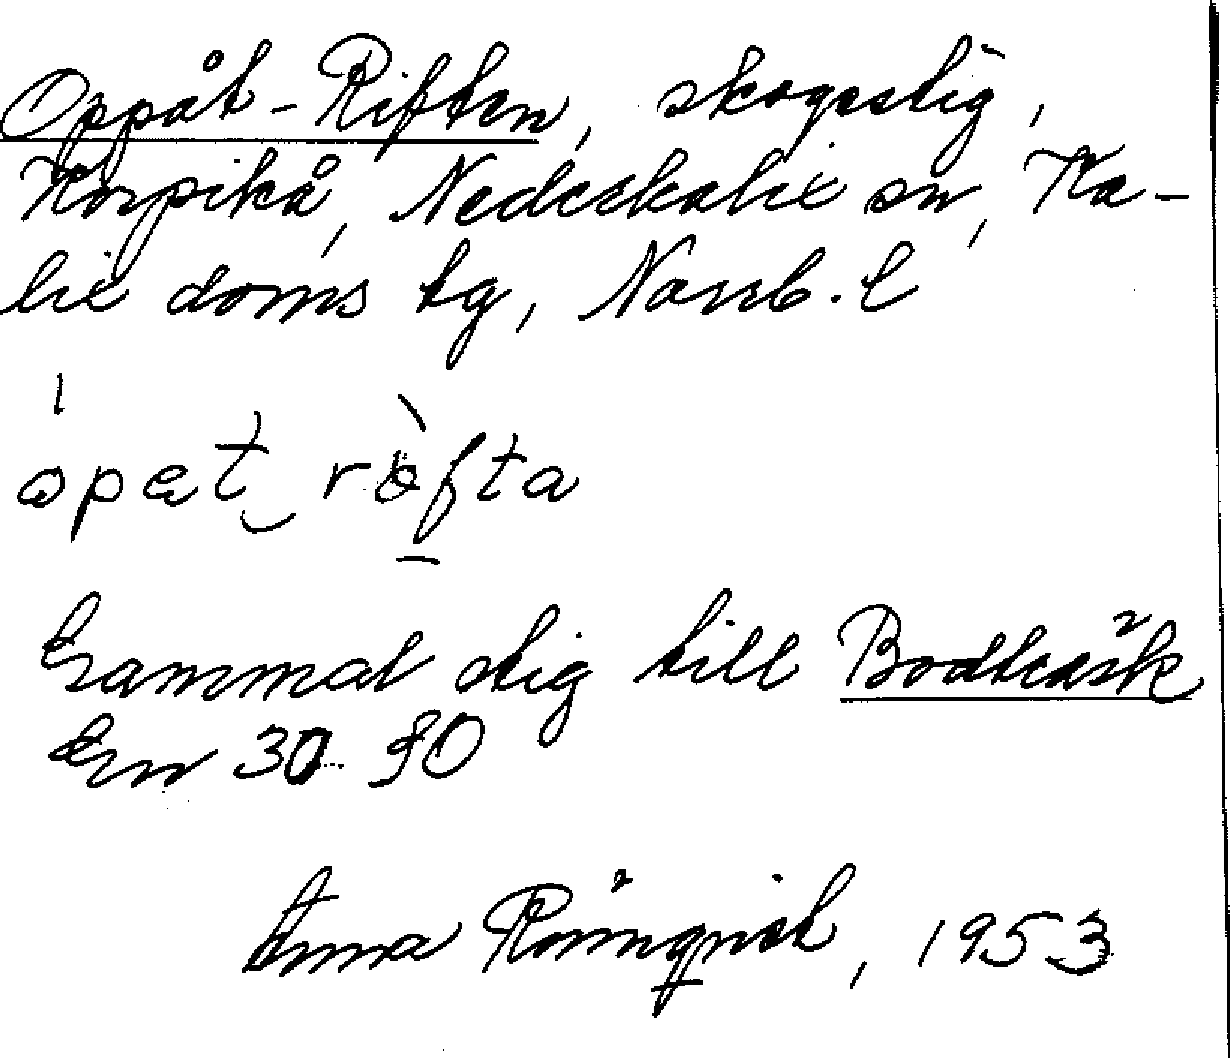 Oppåt-Riften, skogsstig,
Korpikå, Nederkalix sn, Ka-
lix doms tg, Norrb. l
åpæt röfta
Gammal stig till Bodträsk
En 30 90
Anna Rönnqvist, 1953